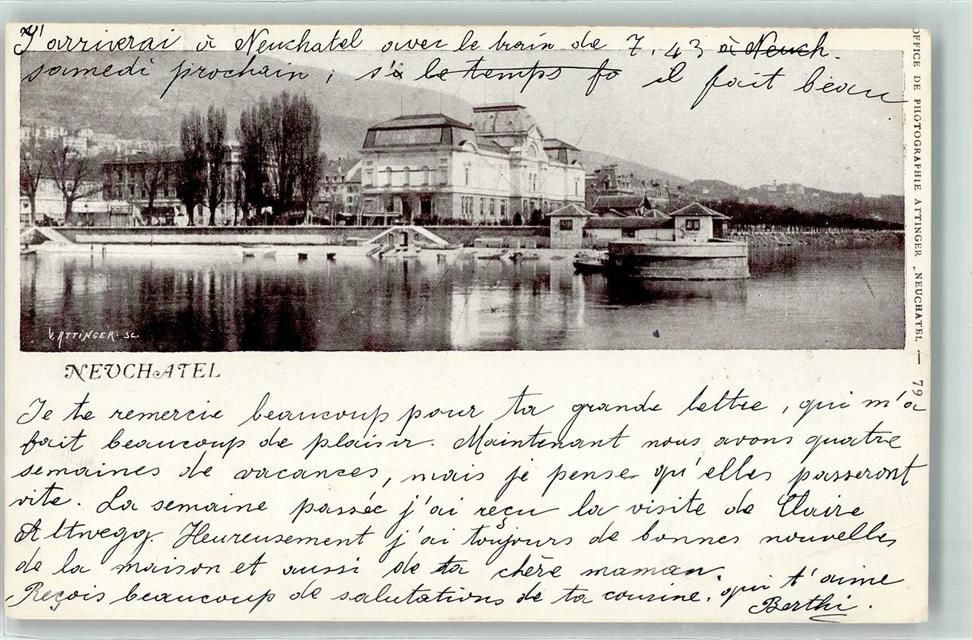 J'arriverai à Neuchatel avec le train de 7.43 à Neuch.
samedi prochain, si le temps fa il fait beau
OFFICE DE PHOTOGRAPHIE ATTINGER, NEUCHATEL — 79
V. ATTINGER. SC.
NEUCHATEL
Je te remercie beaucoup pour ta grande lettre, qui m'a
fait beaucoup de plaisir. Maintenant nous avons quatre
semaines de vacances, mais je pense qu'elles passeront
vite. La semaine passée j'ai reçu la visite de Claire
Altwegg. Heureusement j'ai toujours de bonnes nouvelles
de la maison et aussi de ta chère maman.
Reçois beaucoup de salutations de ta cousine, qui t'aime
Berthi.